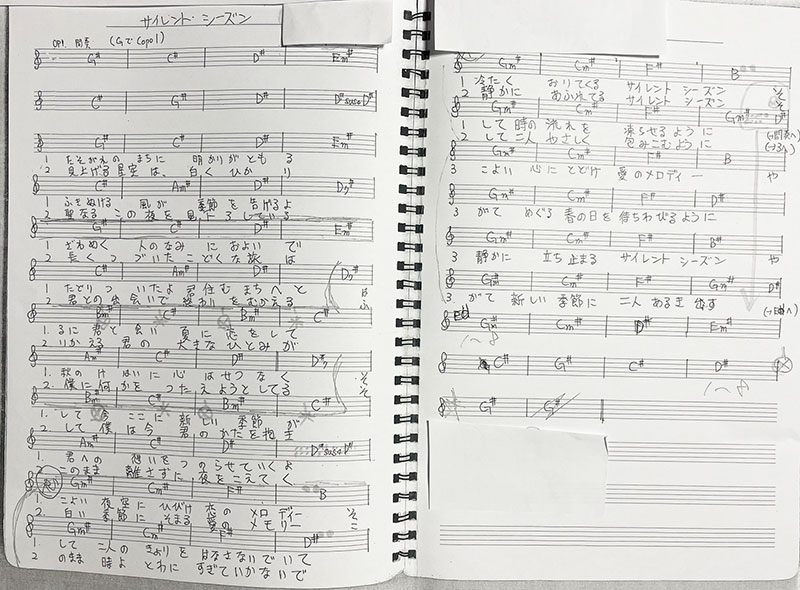 サイレント・シーズン
OP1. 間奏 (GでCapo1)
G# C# D# Em#
C# G# D# D#sus4 D#
G# C# D# Em#
1 たそがれの まちに 明かりがともる
2 見上げる星空は、白くひかり
C# Am# D# D7#
1 ふきぬける 風が 季節を告げるよ
2 聖なるこの夜を見下ろしている
G# C# D# Em#
1 ざわめく 人のなみ におよいで
2 長くつづいたこどくな旅は
C# Am# D# D7#
1 たどりついたよ 君住むまちへと は
2 君との出会いで 終わりをむかえる ふ
Bm# C# Bm# C#
1. るに君と会い 夏に恋をして
2. りかえる君の 大きなひとみが
Am# C# D# D7#
1. 秋のけはいに心はせつなく そ
2. 僕に何かを つたえようとしてる そ
Bm# C# Bm# C#
1. して今 ここに新しい 季節が
2 して僕は今 君のかたを抱き
Am# C# D# D#sus4 D#
1. 君への 想いをつのらせていくよ
2 このまま 離さずに夜をこえてく
Gm# Cm# F# B
1. こよい夜空にひびけ恋のメロディー そ
2. 白い季節にそまる愛のメモリー こ
Gm# Cm# F# D#
1. して二人のきょりをはなさないでいて
2 のまま時よとわにすぎていかないで
Gm# Cm# F# B
1 冷たく おりてくる サイレント シーズン そ
2 静かに あふれてる サイレント シーズン そ
Gm# Cm# F# Gm# D#
1 して時の流れを 凍らせるように (→間奏へ)
2 して二人やさしく 包みこむように (→3へ)
Gm# Cm# F# B
3 こよい心にとどけ 愛のメロディー や
Gm# Cm# F# D#
3 がて めぐる春の日を待ちわびるように
Gm# Cm# F# B#
3 静かに 立ち止まる サイレント シーズン や
Gm# Cm# F# Gm# D#
3 がて 新しい季節に 二人 あるき出す
Gm# Cm# D# Em#
1〜8
C# G# C# D#
1〜8
G# G#